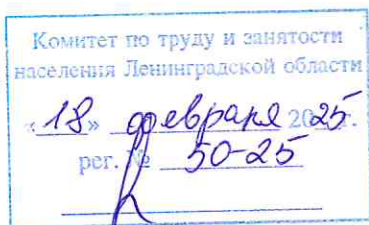 Комитет по труду и занятости
населения Ленинградской области
«18» февраля 2025г.
рег. № 50-25